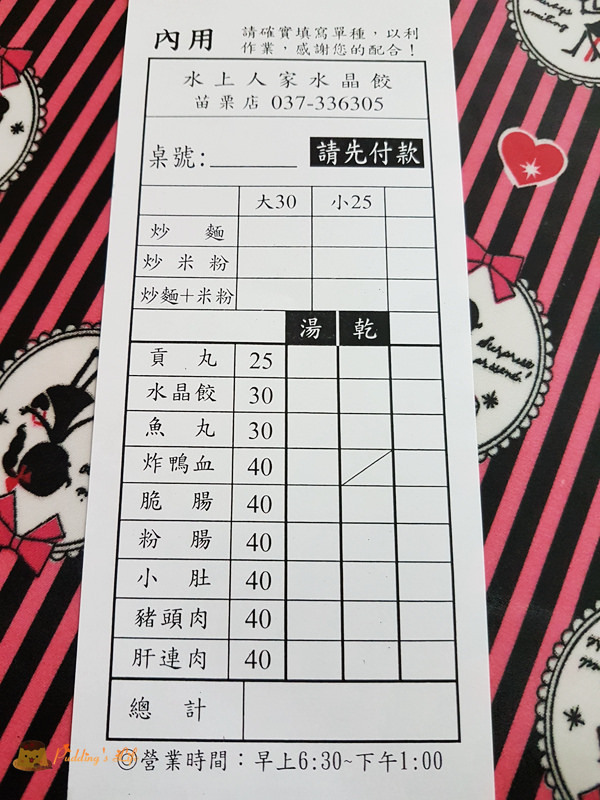 內用 請確實填寫單種，以利
作業，感謝您的配合！
水上人家水晶餃
苗栗店 037-336305
桌號： 請先付款
大30 小25
炒麵
炒米粉
炒麵+米粉
湯 乾
貢丸 25
水晶餃 30
魚丸 30
炸鴨血 40
脆腸 40
粉腸 40
小肚 40
豬頭肉 40
肝連肉 40
總計
◎營業時間：早上6:30~下午1:00
Pudding's
Surprise
presents!
smiling